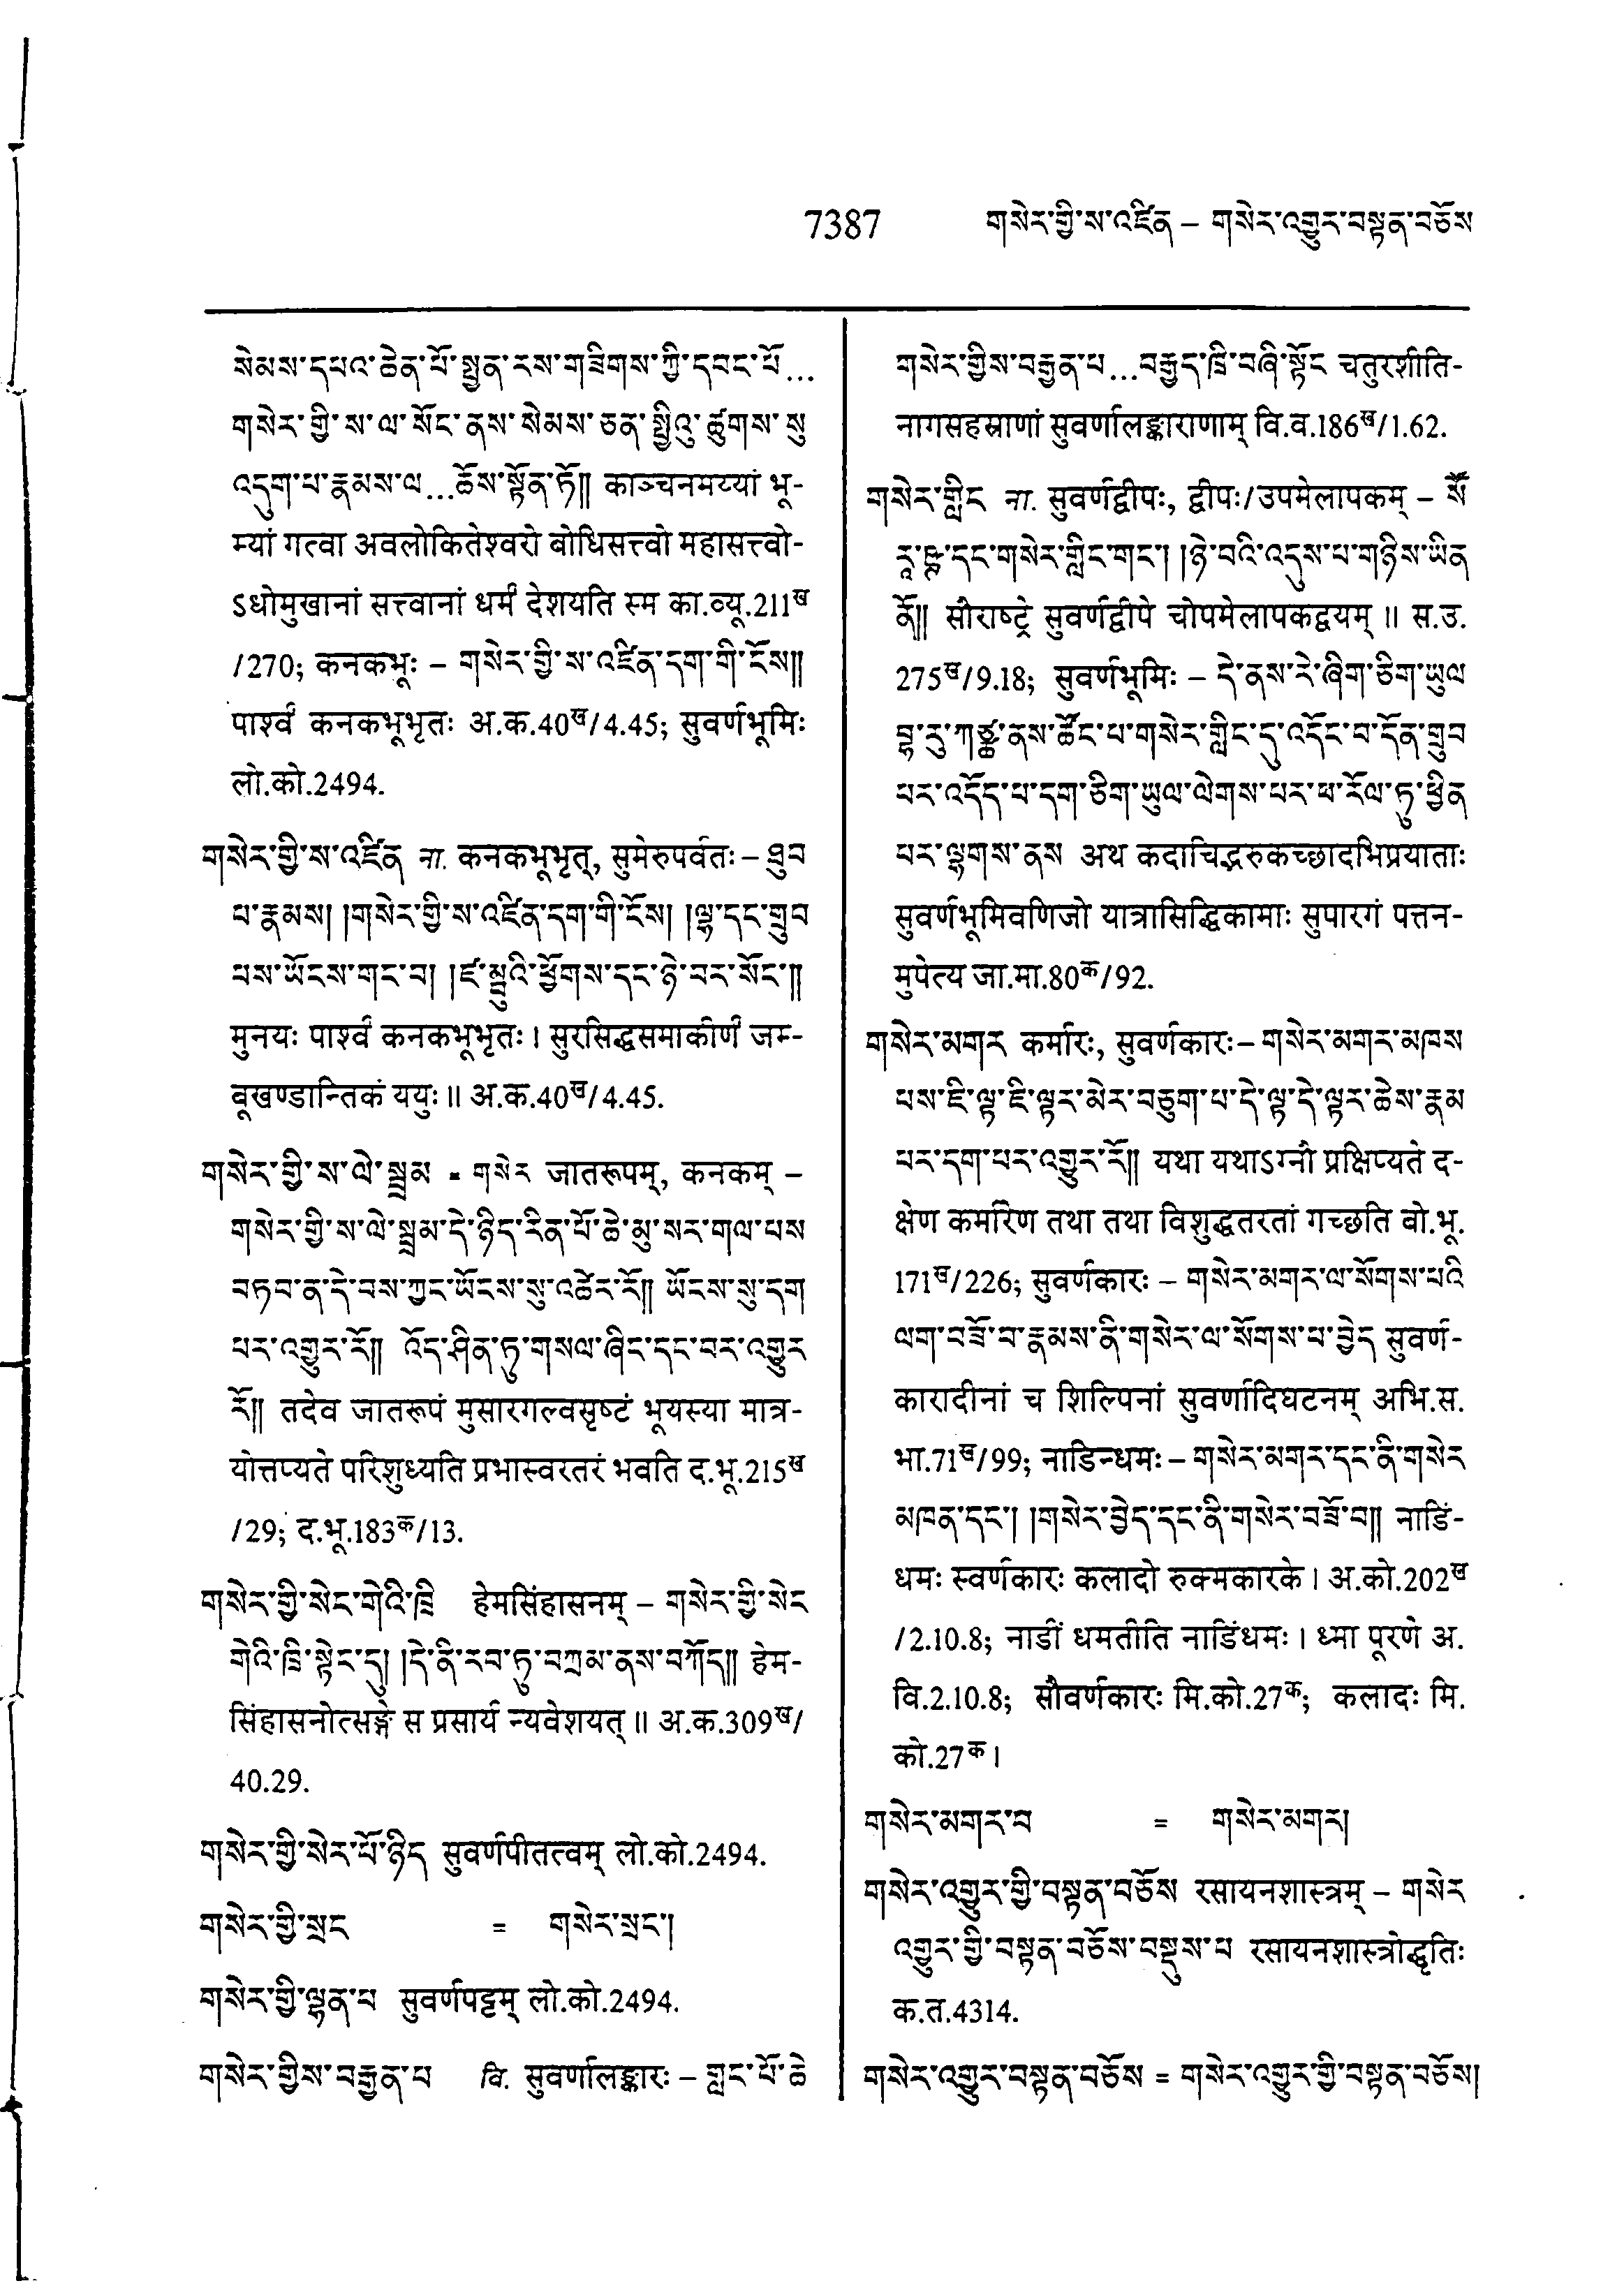 7387 གསེར་གྱི་ས་འཛིན – གསེར་འགྱུར་བསྟན་བཅོས
སེམས་དཔའ་ཆེན་པོ་སྤྱན་རས་གཟིགས་ཀྱི་དབང་པོ...
གསེར་གྱི་ས་ལ་སོང་ནས་སེམས་ཅན་སྤྱིའུ་ཚུགས་སུ
འདུག་པ་རྣམས་ལ...ཆོས་སྟོན་ཏོ།། काञ्चनमय्यां भू-
म्यां गत्वा अवलोकितेश्वरो बोधिसत्त्वो महासत्त्वो-
ऽधोमुखानां सत्त्वानां धर्मं देशयति स्म का.व्यू.211ख
/270; कनकभूः – གསེར་གྱི་ས་འཛིན་དག་གི་ངོས།།
पार्श्वं कनकभूभृतः अ.क.40ख/4.45; सुवर्णभूमिः
लो.को.2494.
གསེར་གྱི་ས་འཛིན ना. कनकभूभृत्, सुमेरुपर्वतः – ཐུབ
པ་རྣམས། །གསེར་གྱི་ས་འཛིན་དག་གི་ངོས། །ལྷ་དང་གྲུབ
པས་ཡོངས་གང་བ། །ཛ་མྦུའི་ཕྱོགས་དང་ཉེ་བར་སོང་།།
मुनयः पार्श्वं कनकभूभृतः। सुरसिद्धसमाकीर्णं जम्-
बूखण्डान्तिकं ययुः॥ अ.क.40ख/4.45.
གསེར་གྱི་ས་ལེ་སྦྲམ = གསེར जातरूपम्, कनकम् –
གསེར་གྱི་ས་ལེ་སྦྲམ་དེ་ཉིད་རིན་པོ་ཆེ་མུ་སར་གལ་པས
བཏབ་ན་དེ་བས་ཀྱང་ཡོངས་སུ་འཚེར་རོ།། ཡོངས་སུ་དག
པར་འགྱུར་རོ།། འོད་ཤིན་ཏུ་གསལ་ཞིང་དང་བར་འགྱུར
རོ།། तदेव जातरूपं मुसारगल्वसृष्टं भूयस्या मात्र-
योत्तप्यते परिशुध्यति प्रभास्वरतरं भवति द.भू.215ख
/29; द.भू.183क/13.
གསེར་གྱི་སེང་གེའི་ཁྲི हेमसिंहासनम् – གསེར་གྱི་སེང
གེའི་ཁྲི་སྟེང་དུ། །དེ་ནི་རབ་ཏུ་བཀྲམ་ནས་བཀོད།། हेम-
सिंहासनोत्सङ्गे स प्रसार्य न्यवेशयत्॥ अ.क.309ख/
40.29.
གསེར་གྱི་སེར་པོ་ཉིད सुवर्णपीतत्वम् लो.को.2494.
གསེར་གྱི་སྲང = གསེར་སྲང་།
གསེར་གྱི་ལྷན་པ सुवर्णपट्टम् लो.को.2494.
གསེར་གྱིས་བརྒྱན་པ वि. सुवर्णालङ्कारः – གླང་པོ་ཆེ
གསེར་གྱིས་བརྒྱན་པ...བརྒྱད་ཁྲི་བཞི་སྟོང चतुरशीति-
नागसहस्राणां सुवर्णालङ्काराणाम् वि.व.186ख/1.62.
གསེར་གླིང ना. सुवर्णद्वीपः, द्वीपः/उपमेलापकम् – སཽ
རཱ་ཥྚ་དང་གསེར་གླིང་གང་། །ཉེ་བའི་འདུས་པ་གཉིས་ཡིན
ནོ།། सौराष्ट्रे सुवर्णद्वीपे चोपमेलापकद्वयम्॥ स.उ.
275ख/9.18; सुवर्णभूमिः – དེ་ནས་རེ་ཞིག་ཅིག་ཡུལ
བྷ་རུ་ཀཙྪ་ནས་ཚོང་པ་གསེར་གླིང་དུ་འདོང་བ་དོན་གྲུབ
པར་འདོད་པ་དག་ཅིག་ཡུལ་ལེགས་པར་ཕ་རོལ་ཏུ་ཕྱིན
པར་ལྷགས་ནས अथ कदाचिद्भरुकच्छादभिप्रयाताः
सुवर्णभूमिवणिजो यात्रासिद्धिकामाः सुपारगं पत्तन-
मुपेत्य जा.मा.80क/92.
གསེར་མགར कर्मारः, सुवर्णकारः – གསེར་མགར་མཁས
པས་ཇི་ལྟ་ཇི་ལྟར་མེར་བཅུག་པ་དེ་ལྟ་དེ་ལྟར་ཆེས་རྣམ
པར་དག་པར་འགྱུར་རོ།། यथा यथाऽग्नौ प्रक्षिप्यते द-
क्षेण कर्मारेण तथा तथा विशुद्धतरतां गच्छति बो.भू.
171ख/226; सुवर्णकारः – གསེར་མགར་ལ་སོགས་པའི
ལག་བཟོ་བ་རྣམས་ནི་གསེར་ལ་སོགས་པ་བྱེད सुवर्ण-
कारादीनां च शिल्पिनां सुवर्णादिघटनम् अभि.स.
भा.71ख/99; नाडिन्धमः – གསེར་མགར་དང་ནི་གསེར
མཁན་དང་། །གསེར་བྱེད་དང་ནི་གསེར་བཟོ་བ།། नाडिं-
धमः स्वर्णकारः कलादो रुक्मकारके। अ.को.202ख
/2.10.8; नाडीं धमतीति नाडिंधमः। ध्मा पूरणे अ.
वि.2.10.8; सौवर्णकारः मि.को.27क; कलादः मि.
को.27क।
གསེར་མགར་བ = གསེར་མགར།
གསེར་འགྱུར་གྱི་བསྟན་བཅོས रसायनशास्त्रम् – གསེར
འགྱུར་གྱི་བསྟན་བཅོས་བསྡུས་པ रसायनशास्त्रोद्धृतिः
क.त.4314.
གསེར་འགྱུར་བསྟན་བཅོས = གསེར་འགྱུར་གྱི་བསྟན་བཅོས།